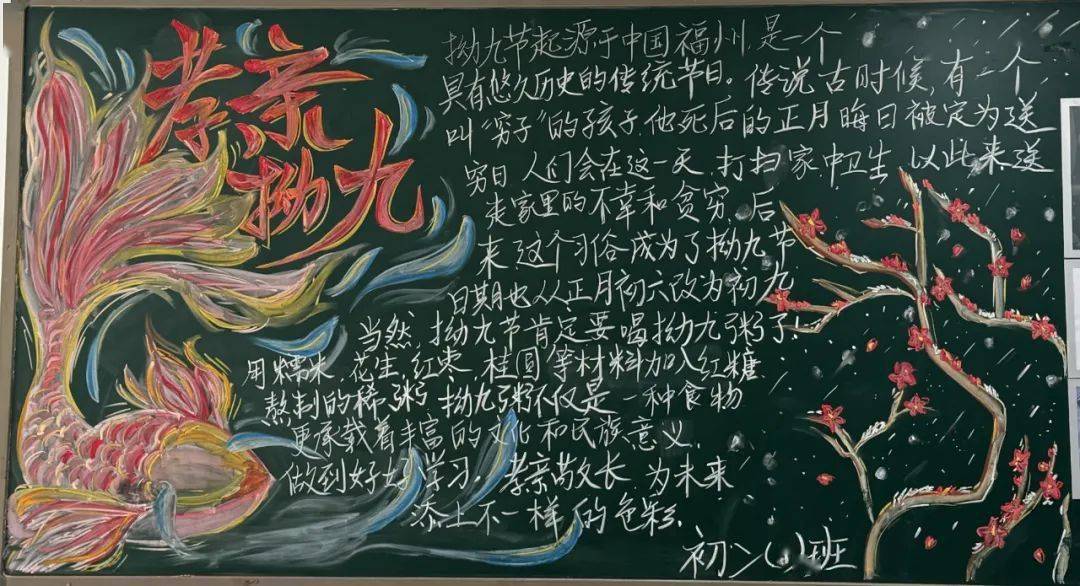 孝亲
拗九
拗九节起源于中国福州,是一个
具有悠久历史的传统节日。传说古时候,有一个
叫“穷子”的孩子,他死后的正月晦日被定为送
穷日 人们会在这一天 打扫家中卫生 以此来送
走家里的不幸和贫穷,后
来,这个习俗成为了拗九节
日期也从正月初六改为初九
当然,拗九节肯定要喝拗九粥了!
用糯米 花生 红枣 桂圆等材料加入红糖
熬制的稀粥 拗九粥不仅是一种食物
更承载着丰富的文化和民族意义,
做到好好学习,孝亲敬长 为未来
添上不一样的色彩。
初二(1)班